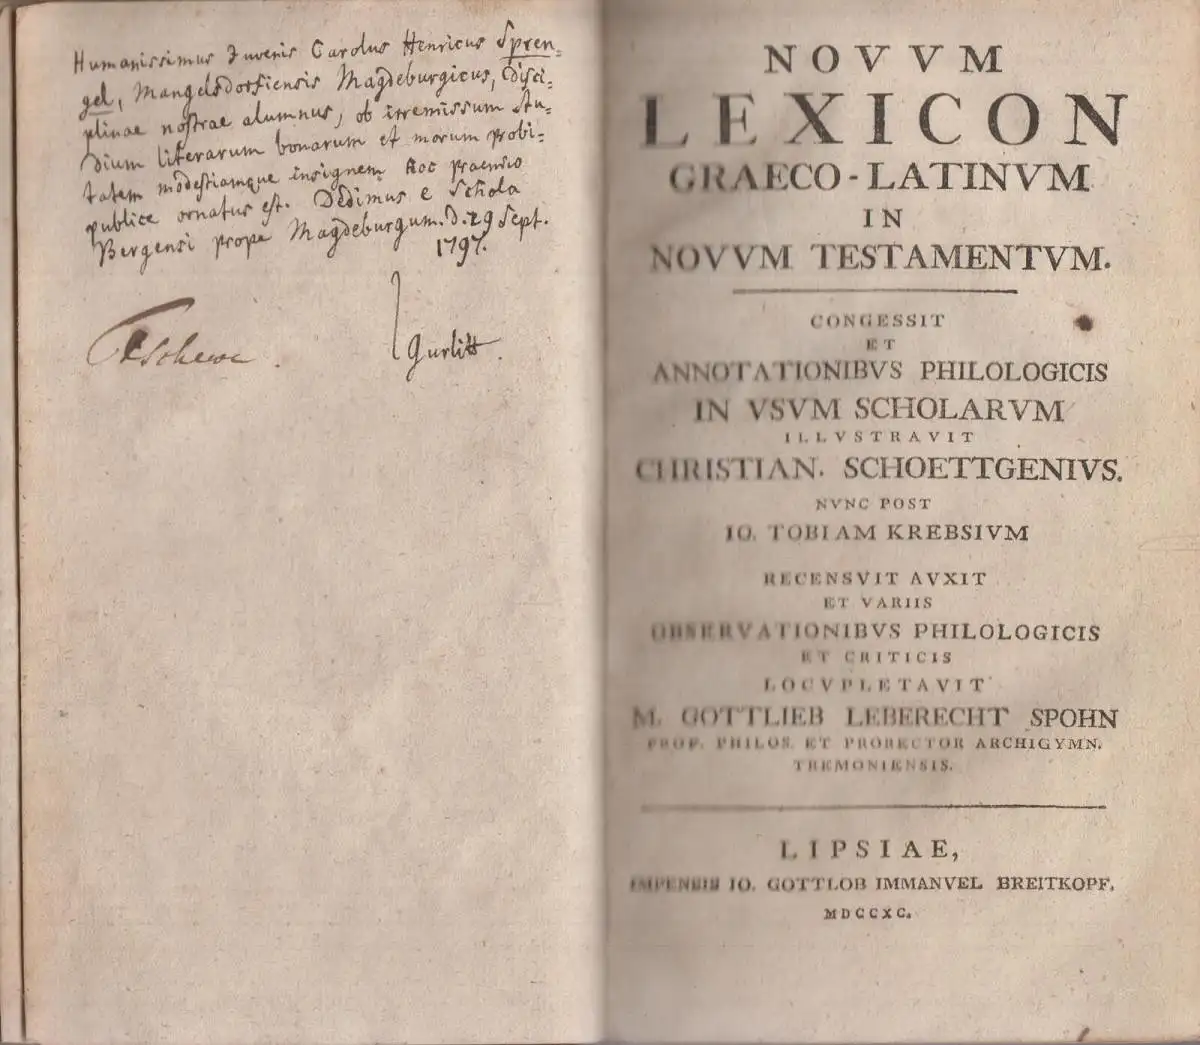 Humanissimus Juvenis Carolus Henricus Spren-
gel, Mangelsdorfiensis Magdeburgicus, disci-
plinae nostrae alumnus, ob irremissum stu-
dium literarum bonarum et morum probi-
tatem modestiamque insignem hoc praemio
publice ornatus est. Dedimus e Schola
Bergensi prope Magdeburgum. d. 29 Sept.
1797.
Gurlitt.
NOVVM
LEXICON
GRAECO-LATINVM
IN
NOVVM TESTAMENTVM.
CONGESSIT
ET
ANNOTATIONIBVS PHILOLOGICIS
IN VSVM SCHOLARVM
ILLVSTRAVIT
CHRISTIAN. SCHOETTGENIVS.
NVNC POST
IO. TOBIAM KREBSIVM
RECENSVIT AVXIT
ET VARIIS
OBSERVATIONIBVS PHILOLOGICIS
ET CRITICIS
LOCVPLETAVIT
M. GOTTLIEB LEBERECHT SPOHN
PROF. PHILOS. ET PRORECTOR ARCHIGYMN.
TREMONIENSIS.
LIPSIAE,
IMPENSIS IO. GOTTLOB IMMANVEL BREITKOPF.
MDCCXC.